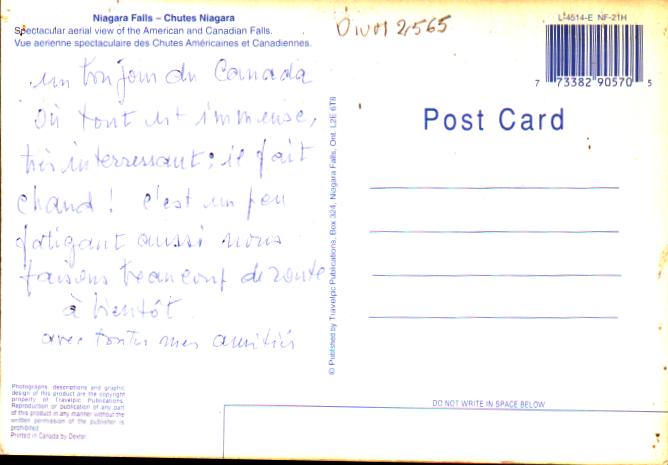 Niagara Falls – Chutes Niagara
Spectacular aerial view of the American and Canadian Falls.
Vue aerienne spectaculaire des Chutes Américaines et Canadiennes.
2,565
L-4514-E NF-21H
7 73382 90570 5
Post Card
un bonjour du Canada
où tout est immense,
très interressant; il fait
chaud ! c'est un peu
fatigant aussi nous
faisons beaucoup de route
à bientôt
avec toutes mes amitiés
© Published by Travelpic Publications, Box 324, Niagara Falls, Ont. L2E 6T8
Photographs, descriptions and graphic
design of this product are the copyright
property of Travelpic Publications.
Reproduction or publication of any part
of this product in any manner without the
written permission of the publisher is
prohibited.
Printed in Canada by Dexter.
DO NOT WRITE IN SPACE BELOW